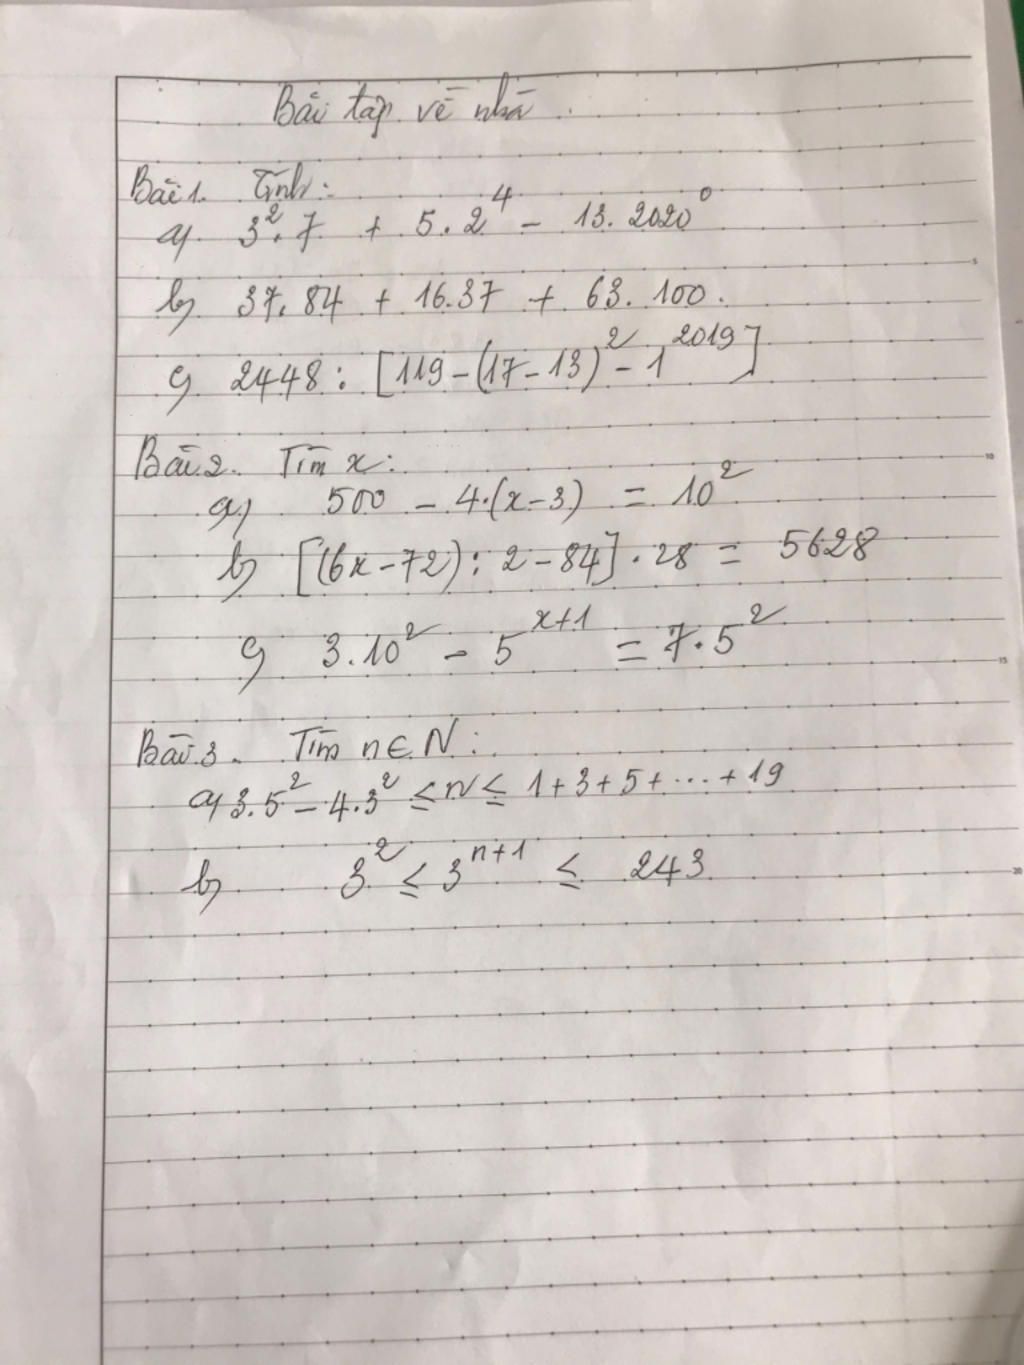 Bài tập về nhà.
Bài 1. Tính:
a) 3². 7 + 5. 2⁴ - 13. 2020⁰
b) 37. 84 + 16. 37 + 63. 100.
c) 2448 : [119 - (17 - 13)² - 1²⁰¹⁹]
Bài 2. Tìm x:
a) 500 - 4.(x - 3) = 10²
b) [(6x - 72) : 2 - 84] . 28 = 5628
c) 3. 10² - 5ˣ⁺¹ = 7. 5²
Bài 3. Tìm n ∈ N:
a) 3. 5² - 4. 3² ≤ n ≤ 1 + 3 + 5 + ... + 19
b) 3² ≤ 3ⁿ⁺¹ ≤ 243
5
10
15
20